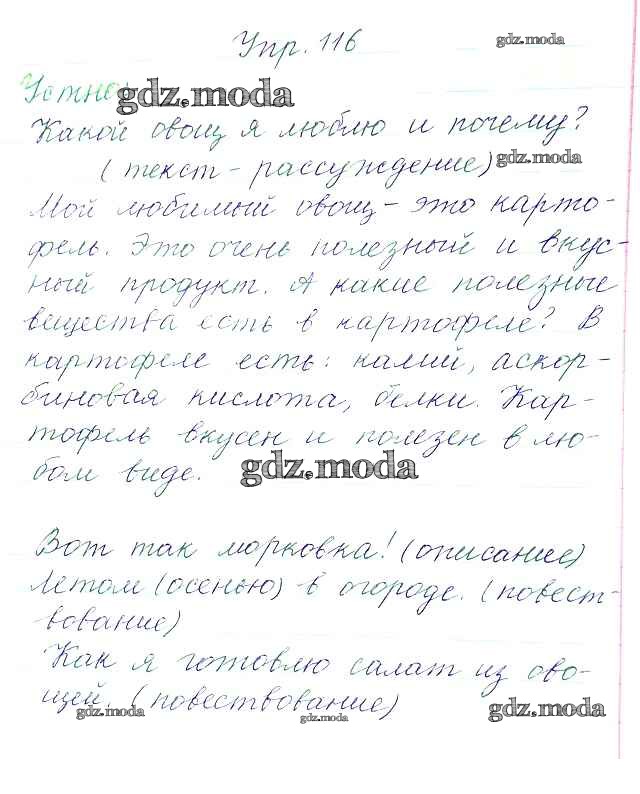 Упр. 116
gdz.moda
Устно.
gdz.moda
Какой овощ я люблю и почему?
(текст - рассуждение)
gdz.moda
Мой любимый овощ - это карто-
фель. Это очень полезный и вкус-
ный продукт. А какие полезные
вещества есть в картофеле? В
картофеле есть: калий, аскор-
биновая кислота, белки. Кар-
тофель вкусен и полезен в лю-
бом виде.
gdz.moda
Вот так морковка! (описание)
Летом (осенью) в огороде. (повест-
вование)
Как я готовлю салат из ово-
щей. (повествование)
gdz.moda
gdz.moda
gdz.moda